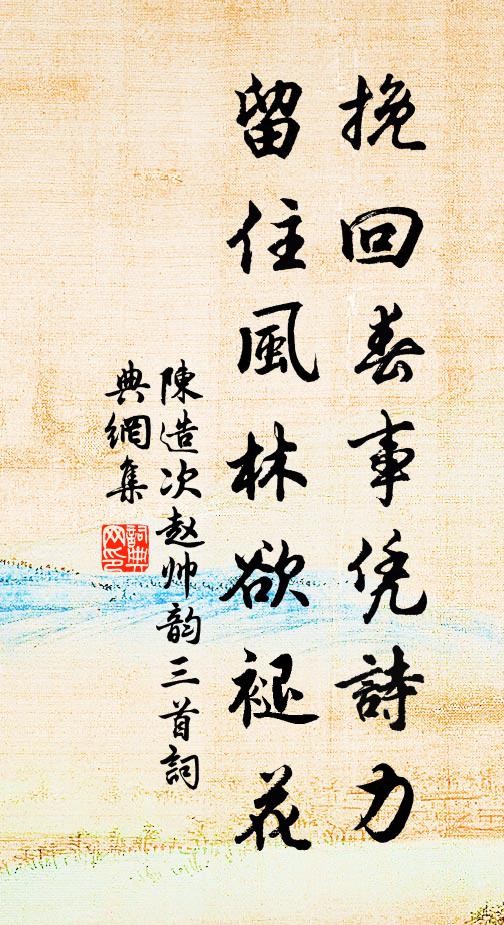 挽回春事凭詩力
留住風林欲褪花
陳造次赵帅韵三首詞
典網集
詞典
网印